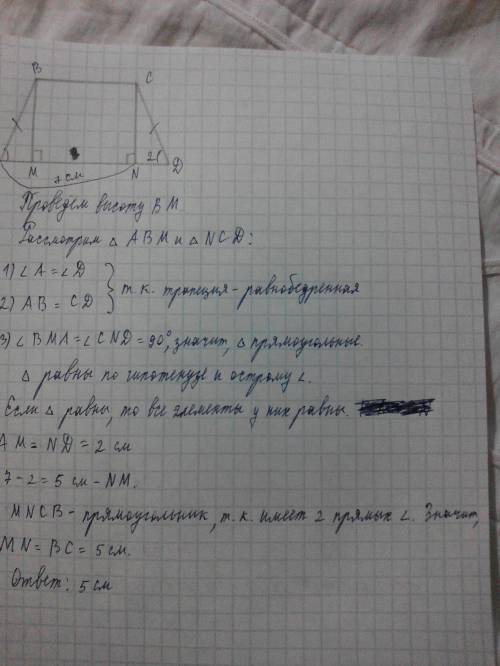 B C
M N 2 D
7 см
Проведём высоту BM
Рассмотрим △ ABM и △ NCD:
1) ∠A = ∠D
2) AB = CD } т.к. трапеция - равнобедренная
3) ∠BMA = ∠CND = 90°, значит, △ прямоугольные.
△ равны по гипотенузе и острому ∠.
Если △ равны, то все элементы у них равны.
AM = ND = 2 см
7 - 2 = 5 см - NM.
MNCB - прямоугольник, т.к. имеет 2 прямых ∠. Значит,
MN = BC = 5 см.
Ответ: 5 см